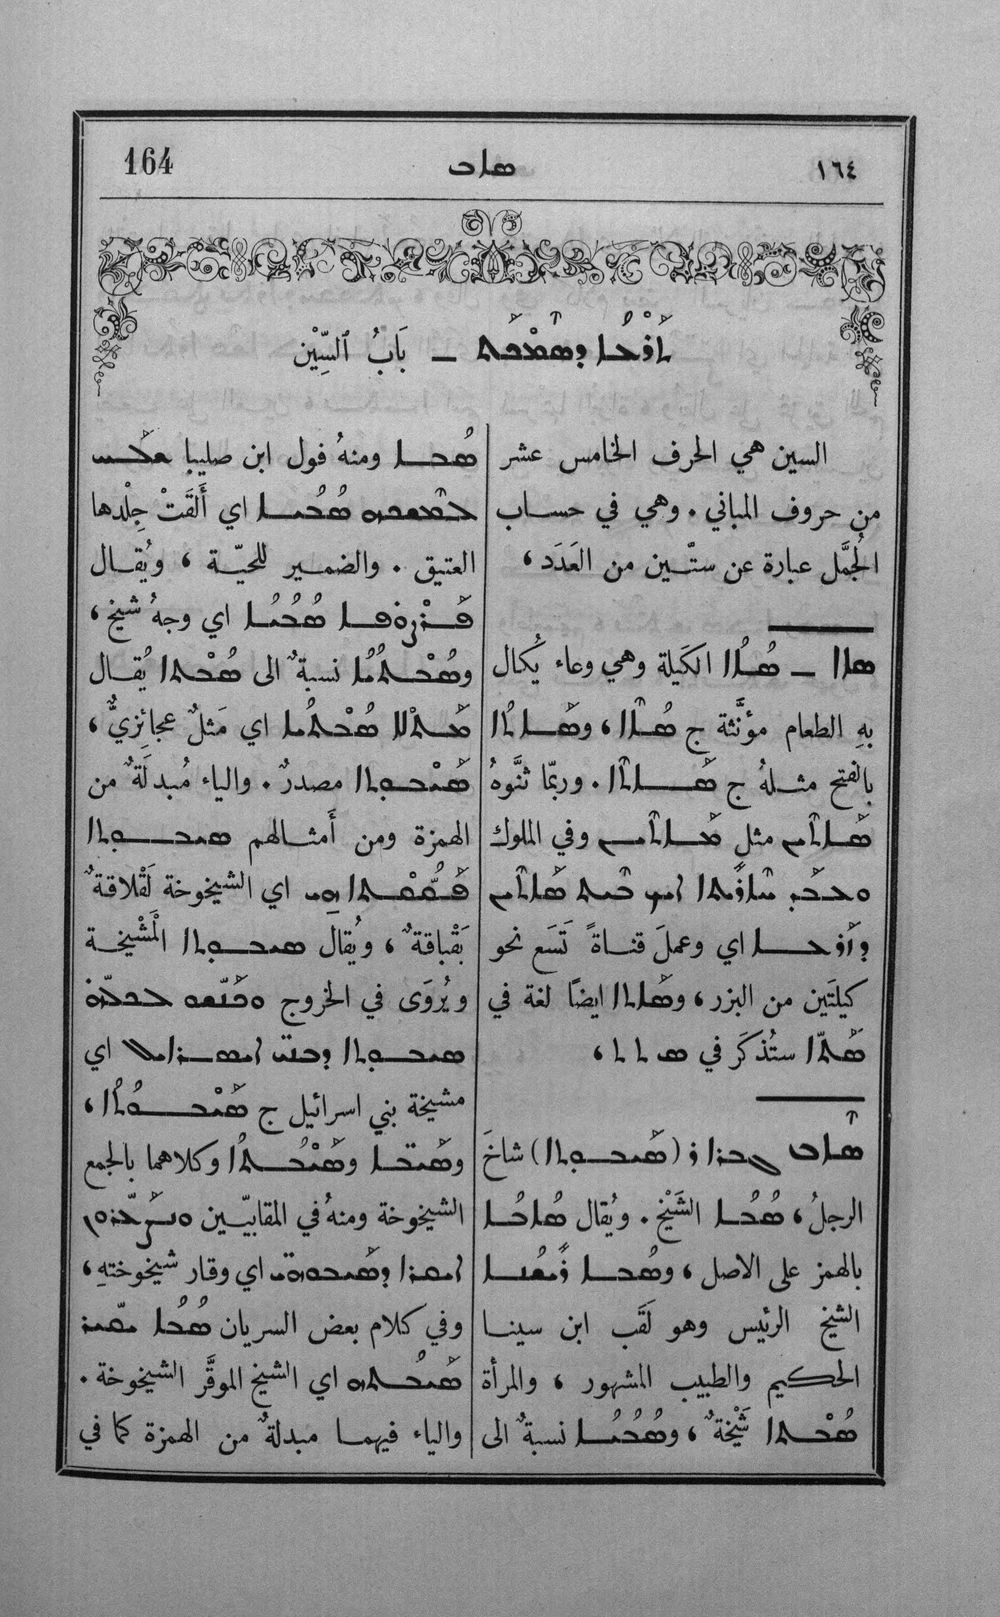 164
ܣܐܒ
١٦٤
ܬܪܥܐ ܕܣܡܟܬ – بَابُ ٱلسِّيْن
السين هي الحرف الخامس عشر
من حروف المباني . وهي في حساب
الجُمَّل عبارة عن ستّين من العَدَد ،
ܣܐܐ – ܣܐܬܐ الكَيلة وهي وعاء يُكال
بهِ الطعام مؤنَّثة ج ܣܐ̈ܐ ، وܣܐܬܐ
بالفتح مثلهُ ج ܣܐ̈ܬܐ . وربّما ثنَّوهُ
ܣܐܬܝܢ مثل ܡܐܬܝܢ وفي الملوك
ܘܥܒܕ ܐܝܟ ܒܝܬ ܣܐܬܝܢ
ܕܙܪܥܐ اي وعملَ قناةً تَسَع نحو
كيلتَين من البزر ، وܣܐܬܐ ايضًا لغة في
ستُذكَر في ܣ ܐ ܐ ،
ܣܐܒ (ܣܝܒܘܬܐ) شاخَ
الرجلُ ، ܣܒܐ الشَيْخ . ويُقال ܣܐܒܐ
بالهمز على الاصل ، وܣܒܐ ܪܝܫܝܐ
الشيخ الرئيس وهو لَقَب ابن سينا
الحكيم والطبيب المشهور ، والمرأة
ܣܒܬܐ شَيْخةٌ ، وܣܒܝܐ نسبةٌ الى
ܣܒܐ ومنهُ قول ابن صليبا ܫܠܚܬ
اي أَلقَتْ جِلْدها
العتيق . والضمير للحيّة ، ويُقال
ܦܪܨܘܦܐ ܣܒܝܐ اي وجهُ شيخ ،
وܣܒܬܢܝܐ نسبةٌ الى ܣܒܬܐ يُقال
ܡܬܠܐ اي مَثلٌ عجائِزيٌّ ،
ܣܝܒܘܬܐ مصدرٌ . والياء مُبدلَةٌ من
الهمزة ومن أَمثالهم ܣܝܒܘܬܐ
ܗܝ اي الشيخوخة لَقْلاقةٌ
بَقْباقةٌ ، ويُقال ܣܝܒܘܬܐ المَشْيخة
ويُروَى في الخروج
ܣܝܒܘܬܐ ܕܒܢܝ ܐܝܣܪܐܝܠ اي
مشيخة بني اسرائيل ج ܣܝܒܘܬܐ ،
وܣܝܒܐ وܣܝܒܬܐ وكلاهما بالجمع
الشيخوخة ومنهُ في المقابيّين
ܐܝܩܪܐ ܕܣܝܒܘܗܝ اي وقار شيخوختهِ ،
وفي كلام بعض السريان ܣܒܐ ܡܝܩܪ
ܣܝܒܬܗ اي الشيخ الموقَّر الشيخوخة .
والياء فيهما مبدلةٌ من الهمزة كما في